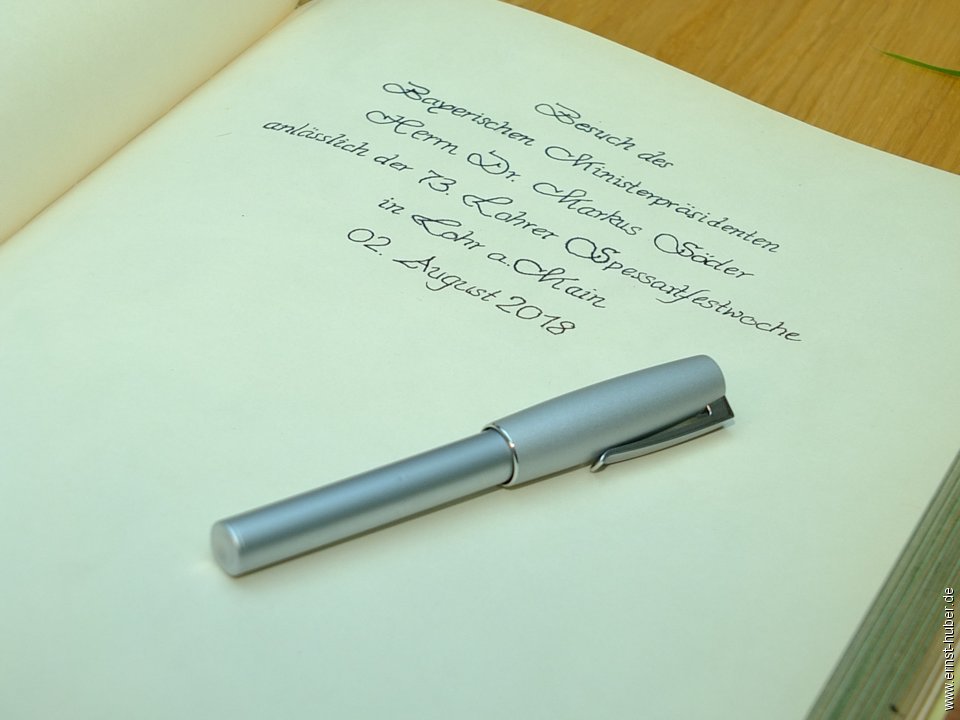 Besuch des
Bayerischen Ministerpräsidenten
Herrn Dr. Markus Söder
anlässlich der 73. Lohrer Spessartfestwoche
in Lohr a. Main
02. August 2018
www.ernst-huber.de